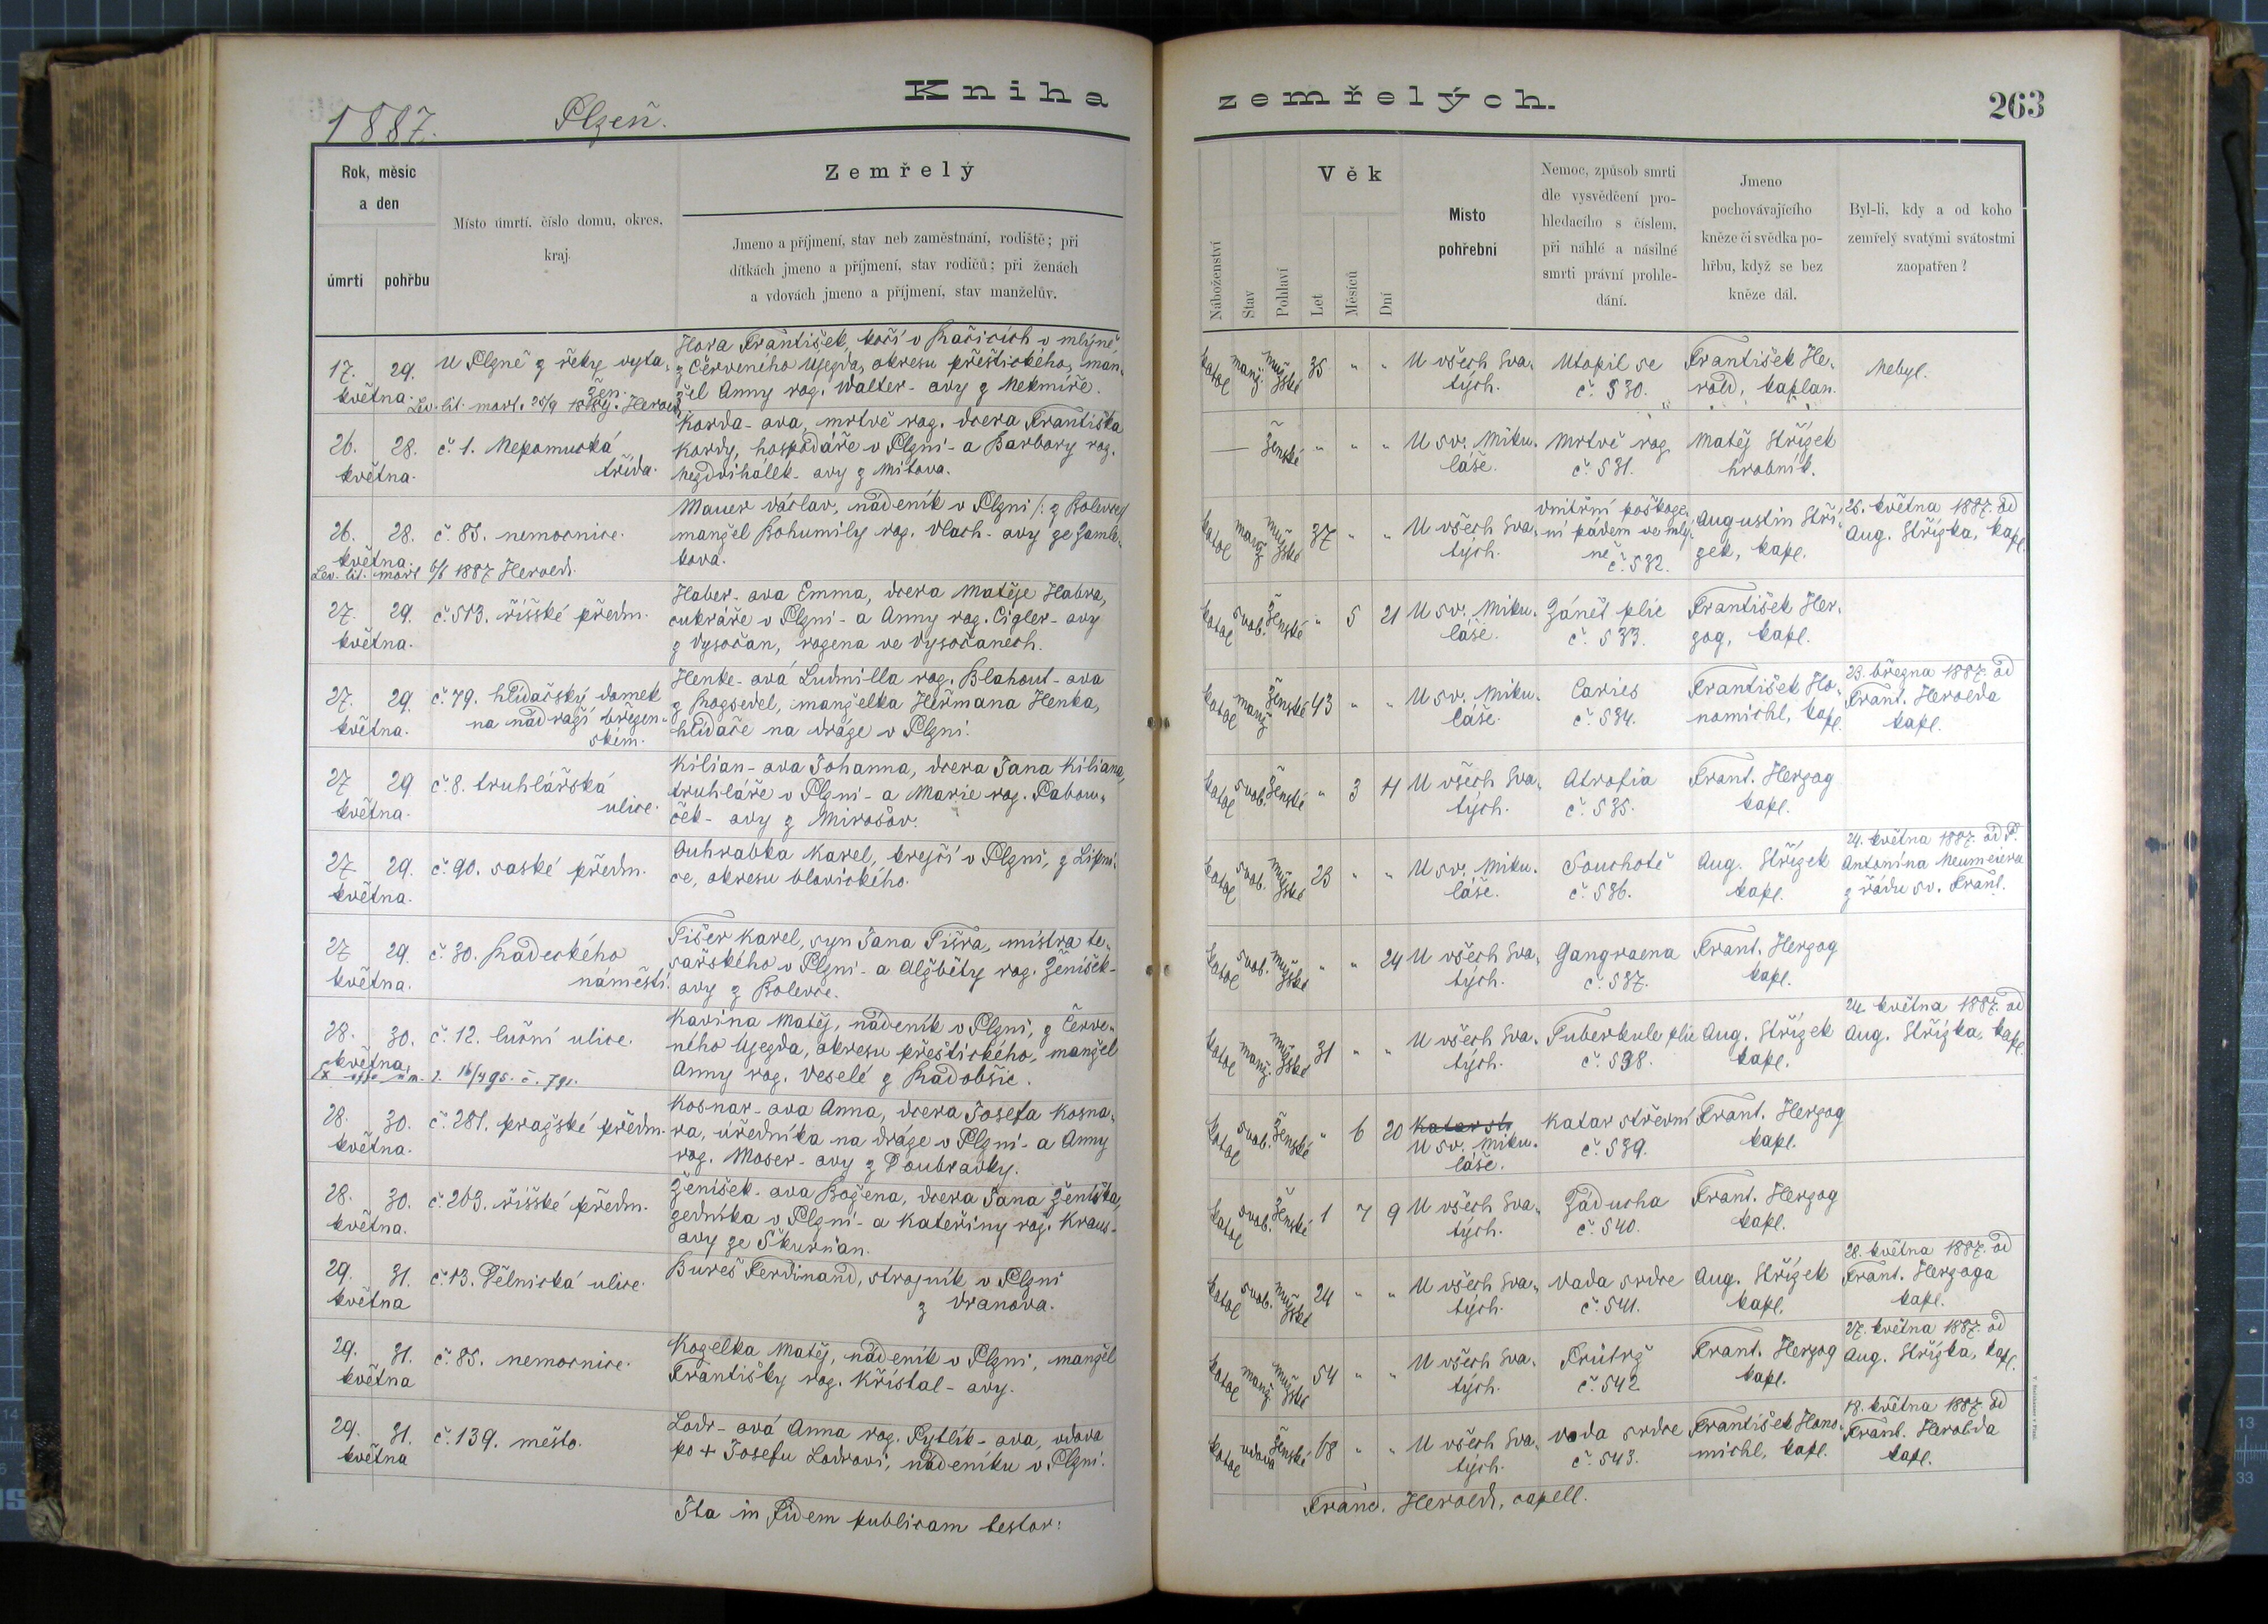 Kniha zemřelých.
263
1887. Plzeň.
Rok, měsíc
a den
úmrtí pohřbu
Místo úmrtí, číslo domu, okres,
kraj.
Zemřelý
Jmeno a příjmení, stav neb zaměstnání, rodiště; při
dítkách jmeno a příjmení, stav rodičů; při ženách
a vdovách jmeno a příjmení, stav manželův.
Náboženství
Stav
Pohlaví
Věk
Let
Měsíců
Dní
Místo
pohřební
Nemoc, způsob smrti
dle vysvědčení pro-
hledacího s číslem,
při náhlé a násilné
smrti právní prohle-
dání.
Jmeno
pochovávajícího
kněze či svědka po-
hřbu, když se bez
kněze dál.
Byl-li, kdy a od koho
zemřelý svatými svátostmi
zaopatřen?
17. 29.
května.
U Plzně z řeky vyta-
žen.
Lev. lit. mort. 28/9 Herold
Hora František, kočí v Kačicích v mlýně
z Červeného Újezda, okresu přeštického, man-
žel Anny roz. Walter-ovy z Nekmíře.
katol manž. mužské 35 " "
U všech Sva-
tých.
Utopil se
č. 530.
František He-
rold, kaplan.
Nebyl.
26. 28.
května.
č. 1. Nepomucká
třída.
Korda-ova, mrtvě roz. dcera Františka
Kordy, hospodáře v Plzni - a Barbory roz.
Nezdvihálek-ovy z Mitova.
— ženské " " "
U sv. Miku-
láše.
Mrtvě roz.
č. 531.
Matěj Střízek
hrobník.
26. 28.
května.
Lev. lit. mort 6/6 1887 Herold.
č. 85. nemocnice.
Mauer Václav, nádeník v Plzni /: z Bolevce/
manžel Bohumily roz. Vlach-ovy ze Žamle-
kova.
katol manž mužské 37 " "
U všech Sva-
tých.
vnitřní poškoze-
ní pádem ve mlý-
ně č. 532.
Augustin Stří-
zek, kapl.
25. května 1887. od
Aug. Střízka, kapl.
27. 29.
května.
č. 513. říšské předm.
Haber-ova Emma, dcera Matěje Habra,
cukráře v Plzni - a Anny roz. Cigler-ovy
z Vysočan, rozena ve Vysočanech.
katol svob. ženské " 5 21
U sv. Miku-
láše.
Zánět plic
č. 533.
František Her-
zog, kapl.
27. 29.
května.
č. 79. hlídačský domek
na nádraží březen-
ském.
Henke-ová Ludmilla roz. Blahout-ova
z Rozsedel, manželka Heřmana Henka,
hlídače na dráze v Plzni.
katol manž ženské 43 " "
U sv. Miku-
láše.
Caries
č. 534.
František Ho-
nomichl, kapl.
23. března 1887. od
Frant. Herolda
kapl.
27 29
května.
č. 8. truhlářská
ulice.
Kilian-ova Johanna, dcera Jana Kiliana,
truhláře v Plzni - a Marie roz. Pabou-
ček-ovy z Mirošov.
katol svob. ženské " 3 11
U všech Sva-
tých.
Atrofia
č. 535.
Frant. Herzog
kapl.
27 29.
května.
č. 90. saské předm.
Ouhrabka Karel, krejčí v Plzni, z Lipni-
ce, okresu blovického.
katol svob. mužské 23 " "
U sv. Miku-
láše.
Souchotě
č. 536.
Aug. Střízek
kapl.
24. května 1887. od P.
Antonína Neumeiera
z řádu sv. Frant.
27 29.
května.
č. 30. Radeckého
náměstí.
Fišer Karel, syn Jana Fišra, mistra te-
sařského v Plzni - a Alžběty roz. Ženíšek-
ovy z Bolevce.
katol svob. mužské " " 24
U všech Sva-
tých.
Gangraena
č. 537.
Frant. Herzog
kapl.
28. 30.
května.
16/4 95. č. 791.
č. 12. luční ulice.
Kavina Matěj, nádeník v Plzni, z Červe-
ného Újezda, okresu přeštického, manžel
Anny roz. Veselé z Radobšic.
katol manž. mužské 31 " "
U všech Sva-
tých.
Tuberkule plic
č. 538.
Aug. Střízek
kapl.
24. května 1887. od
Aug. Střízka, kapl.
28. 30.
května.
č. 281. pražské předm.
Kosnar-ova Anna, dcera Josefa Kosna-
ra, úředníka na dráze v Plzni - a Anny
roz. Moser-ovy z Doubravky.
katol svob. ženské " 6 20
Katar stř
U sv. Miku-
láše.
Katar střevní
č. 539.
Frant. Herzog
kapl.
28. 30.
května.
č. 263. říšské předm.
Ženíšek-ova Božena, dcera Jana Ženíška,
zedníka v Plzni - a Kateřiny roz. Kraus-
ovy ze Škurňan.
katol svob. ženské 1 7 9
U všech Sva-
tých.
Záducha
č. 540.
Frant. Herzog
kapl.
29. 31.
května
č. 13. Dělnická ulice.
Bureš Ferdinand, strojník v Plzni
z Vranova.
katol svob. mužské 24 " "
U všech Sva-
tých.
Vada srdce
č. 541.
Aug. Střízek
kapl.
28. května 1887. od
Frant. Herzoga
kapl.
29. 31.
května
č. 85. nemocnice.
Kozelka Matěj, nádeník v Plzni, manžel
Františky roz. Křištal-ovy.
katol manž mužské 54 " "
U všech Sva-
tých.
Frútrž
č. 542
Frant. Herzog
kapl.
27. května 1887. od
Aug. Střízka, kapl.
29. 31.
května
č. 139. město.
Lodr-ová Anna roz. Pytlík-ova, vdova
po + Josefu Lodrovi, nádeníku v Plzni.
katol vdova ženské 68 " "
U všech Sva-
tých.
Vada srdce
č. 543.
František Hono-
michl, kapl.
18. května 1887. od
Frant. Herolda
kapl.
Ita in fidem publicam testor:
Franc. Herold, capell.